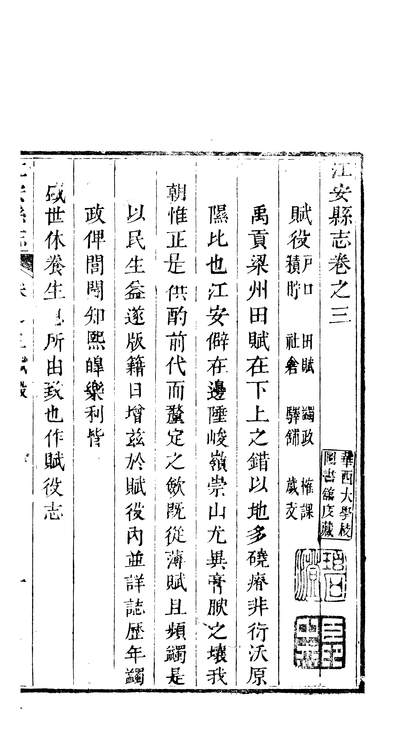 江安縣志卷之三
賦役 戶口 田賦 蠲政 榷課
積貯 社倉 驛鋪 歲支
華西大學校
圖書館庋藏
禹貢梁州田賦在下上之錯以地多磽瘠非衍沃原
隰比也江安僻在邊陲峻嶺崇山尤異膏腴之壤我
朝惟正是供酌前代而釐定之斂既從薄賦且頻蠲是
以民生益遂版籍日增茲於賦役內並詳誌歷年蠲
政俾閭閻知熙皡樂利皆
盛世休養生息所由致也作賦役志